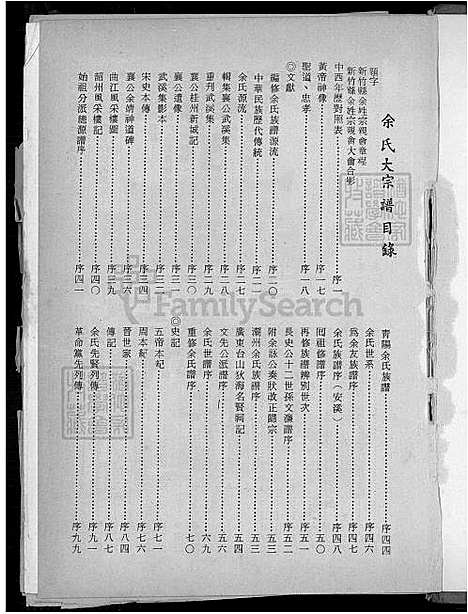 余氏大宗譜目錄
題字
新竹縣余姓宗親會章程
新竹縣余姓宗親會大會合影
中西年歷對照表……序一
黃帝神像……序七
聖道、忠孝……序八
◎文獻
編修余氏族譜源流……序二〇
中華民族歷代傳統……序二一
余氏源流……序二七
輯集襄公武溪集……序二八
重刊武溪集……序二九
襄公桂州新城記……序三〇
襄公遺像……序三一
武溪集影本……序三二
宋史本傳……序三四
襄公余靖神道碑……序三六
曲江風采樓圖……序三九
韶州風采樓記……序四〇
始祖分派總源譜序……序四一
青陽余氏族譜……序四四
余氏世系……序四六
為余友族譜序……序四七
余氏族譜序(安溪)……序四八
回祖修譜序……序五〇
再修族譜辨別世次……序五一
長史公十二世孫文瀰譜序……序五二
附余詠公奏狀改正歸宗……序五三
潮州余氏族譜序……序五三
廣東台山荻海名賢祠記……序五四
文先公派譜序……序五六
余氏世譜序……序六九
重修余氏譜序……序七〇
◎史記
五帝本紀……序七一
周本紀……序七六
晉世家……序八四
傳記……序八七
余氏先賢列傳……序九一
革命黨先列傳……序九九
FamilySearch